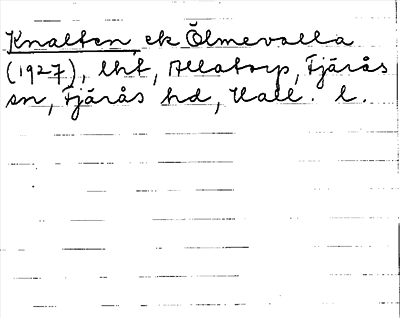 Knalten, ek Ölmevalla
(1927), lht, Allatorp, Fjärås
sn, Fjärås hd, Hall. l.